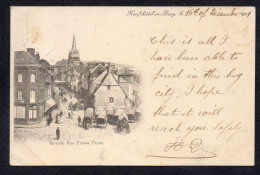 Neufchâtel-en-Bray, le 16th of December 1901
This is all I
have been able to
find in this big
city. I hope
that it will
reach you safely
Grande Rue Fausse Porte